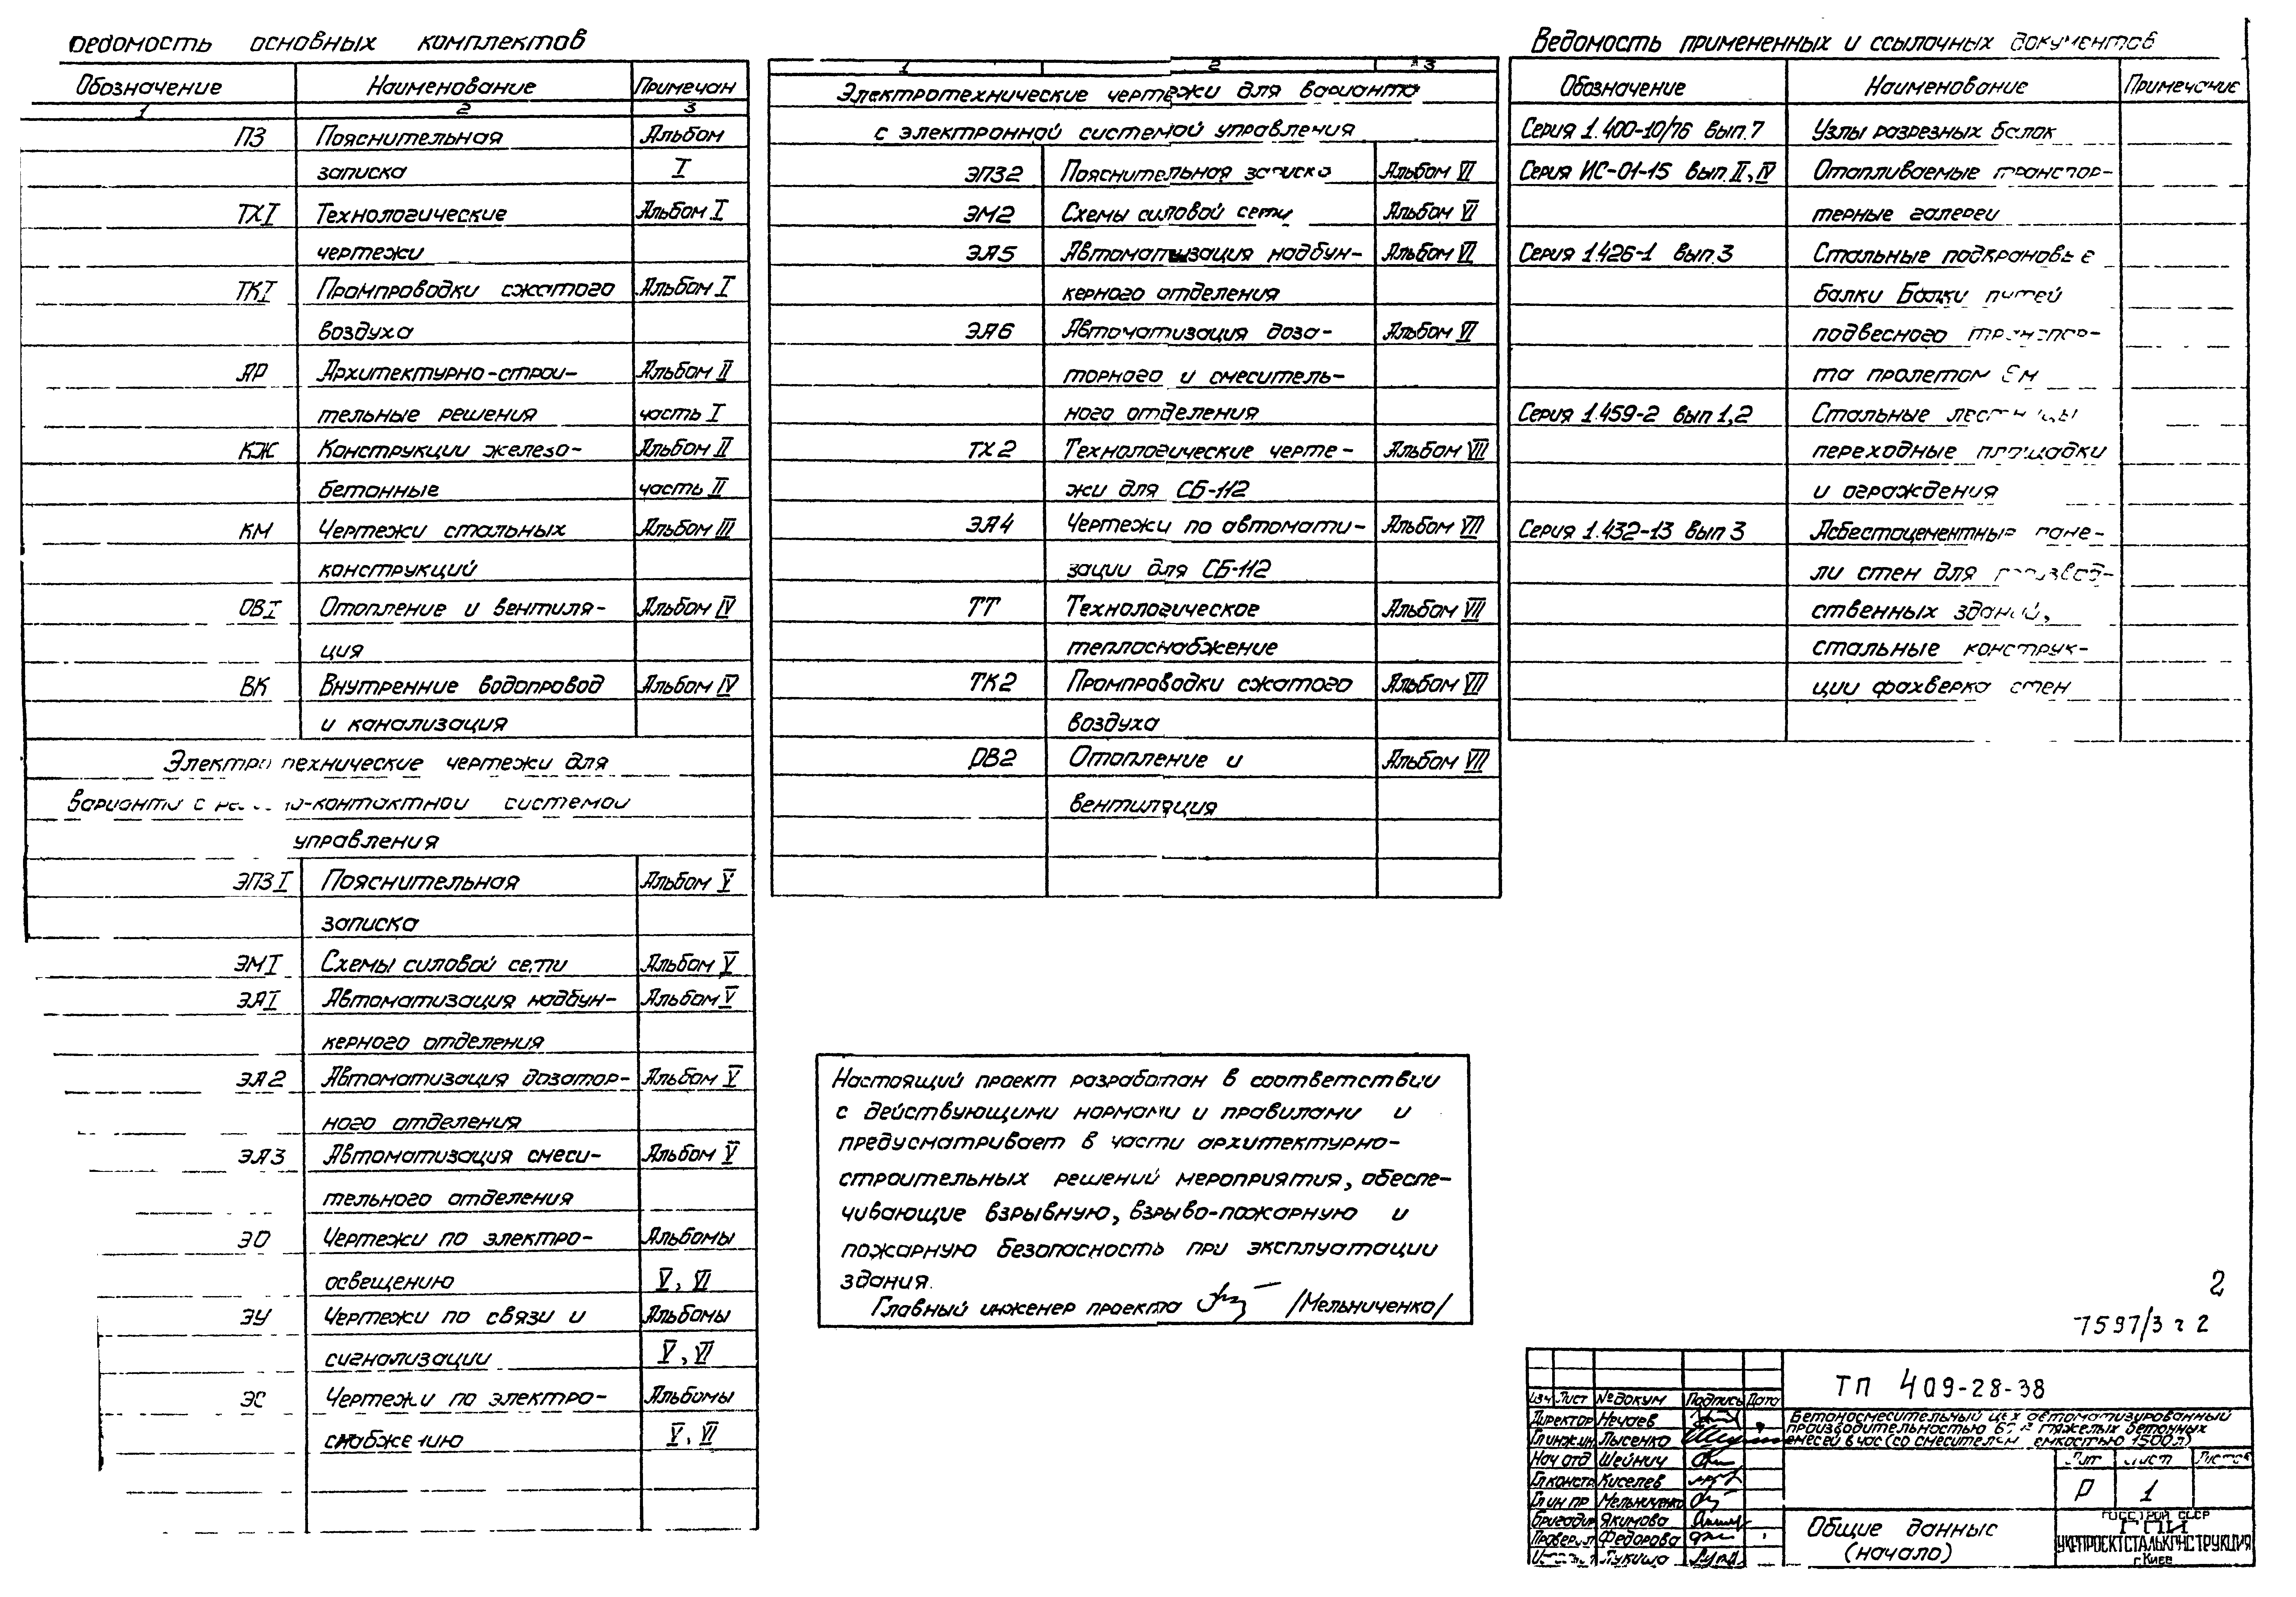 Ведомость основных комплектов
Обозначение Наименование Примечан
1 2 3
ПЗ Пояснительная Альбом
записка I
ТХI Технологические Альбом I
чертежи
ТКI Промпроводки сжатого Альбом I
воздуха
АР Архитектурно-строи- Альбом II
тельные решения часть I
КЖ Конструкции железо- Альбом II
бетонные часть II
КМ Чертежи стальных Альбом III
конструкций
ОВI Отопление и вентиля- Альбом IV
ция
ВК Внутренние водопровод Альбом IV
и канализация
Электротехнические чертежи для
варианта с релейно-контактной системой
управления
ЭПЗI Пояснительная Альбом V
записка
ЭМI Схемы силовой сети Альбом V
ЭАI Автоматизация надбун- Альбом V
керного отделения
ЭА2 Автоматизация дозатор- Альбом V
ного отделения
ЭА3 Автоматизация смеси- Альбом V
тельного отделения
ЭО Чертежи по электро- Альбомы
освещению V, VI
ЭУ Чертежи по связи и Альбомы
сигнализации V, VI
ЭС Чертежи по электро- Альбомы
снабжению V, VI
1 2 3
Электротехнические чертежи для варианта
с электронной системой управления
ЭПЗ2 Пояснительная записка Альбом VI
ЭМ2 Схемы силовой сети Альбом VI
ЭА5 Автоматизация надбун- Альбом VI
керного отделения
ЭА6 Автоматизация доза- Альбом VI
торного и смеситель-
ного отделения
ТХ2 Технологические черте- Альбом VII
жи для СБ-112
ЭА4 Чертежи по автомати- Альбом VII
зации для СБ-112
ТТ Технологическое Альбом VII
теплоснабжение
ТК2 Промпроводки сжатого Альбом VII
воздуха
ОВ2 Отопление и Альбом VII
вентиляция
Ведомость примененных и ссылочных документов
Обозначение Наименование Примечание
Серия 1.400-10/76 вып.7 Узлы разрезных балок
Серия ИС-01-15 вып. II, IV Отапливаемые транспор-
терные галереи
Серия 1.426-1 вып.3 Стальные подкрановые
балки Балки путей
подвесного транспор-
та пролетом 6м
Серия 1.459-2 вып 1,2 Стальные лестницы
переходные площадки
и ограждения
Серия 1.432-13 вып 3 Асбестоцементные пане-
ли стен для производ-
ственных зданий,
стальные конструк-
ции фахверка стен
Настоящий проект разработан в соответствии
с действующими нормами и правилами и
предусматривает в части архитектурно-
строительных решений мероприятия, обеспе-
чивающие взрывную, взрыво-пожарную и
пожарную безопасность при эксплуатации
здания.
Главный инженер проекта /Мельниченко/
2
7597/3 ч 2
ТП 409-28-38
Изм Лист № докум Подпись Дата
Директор Нечаев
Гл инж.ин Лысенко
Нач отд Шейнич
Гл констр Киселев
Гл ин пр Мельниченко
Бригадир Якимова
Проверил Федорова
Лукаша
Бетоносмесительный цех автоматизированный
производительностью тяжелых бетонных
смесей в час (со смесителем емкостью 1500 л)
Лит Лист Листов
Р 1
Общие данные
(начало)
ГОССТРОЙ СССР
ГПИ
УКРПРОЕКТСТАЛЬКОНСТРУКЦИЯ
г.Киев